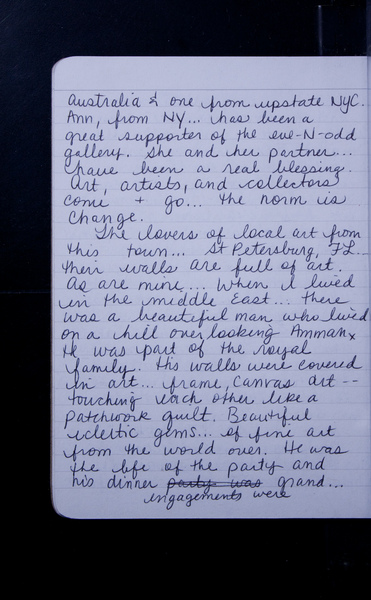 Australia & one from upstate NYC.
Ann, from NY... has been a
great supporter of the eve-N-odd
gallery. She and her partner...
have been a real blessing.
Art, artists, and collectors
come + go... the norm is
change.
The lovers of local art from
this town... St Petersburg, FL...
their walls are full of art.
As are mine... When I lived
in the middle East... there
was a beautiful man who lived
on a hill overlooking Amman,
He was part of the royal
family. His walls were covered
in art... frame, canvas art --
touching each other like a
patchwork quilt. Beautiful
eclectic gems... of fine art
from the world over. He was
the life of the party and
his dinner party was grand...
engagements were